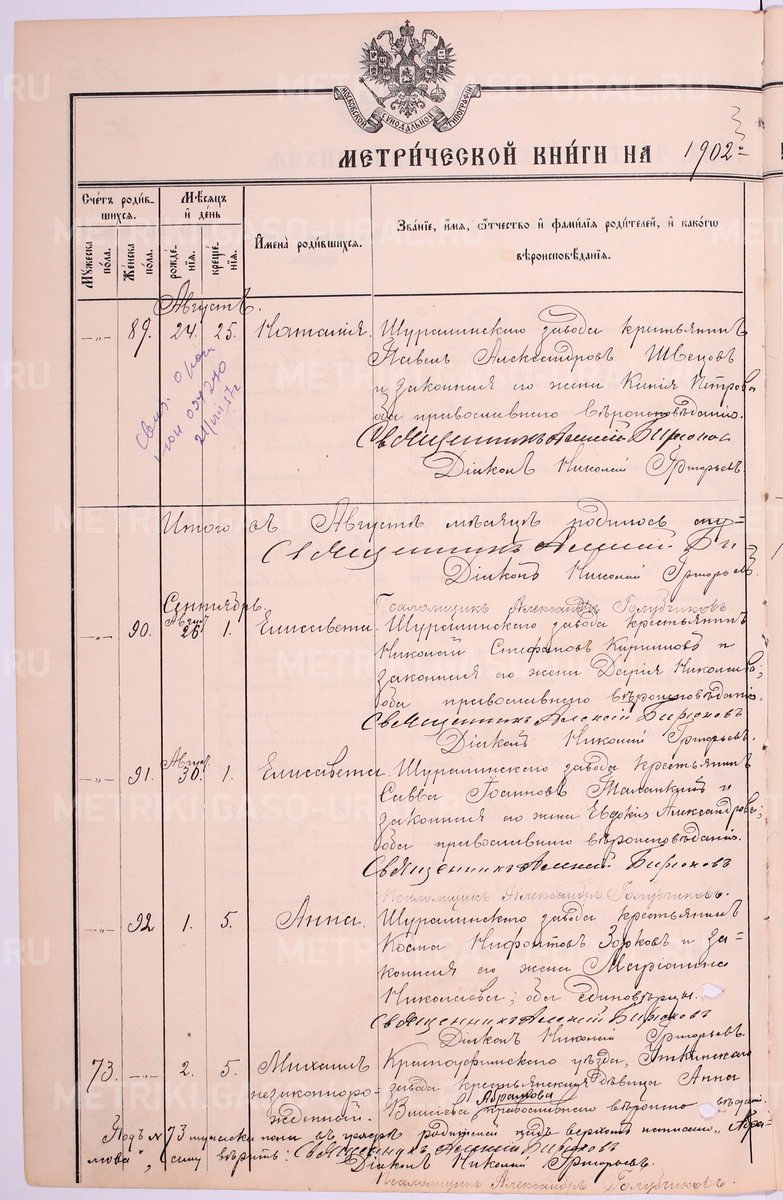 МОСКОВСКОЙ СУНОДАЛЬНОЙ ТИПОГРАФІИ
МЕТРИЧЕСКОЙ КНИГИ НА 1902
Счетъ родившихся.
Мѣсяцъ и день
Имена родившихся.
Званіе, имя, отчество и фамилія родителей, и какогω вѣроисповѣданія.
Мужеска пола.
Женска пола.
рожденія.
крещенія.
Августъ.
-„- 89. 24. 25. Наталія. Шуралинскаго завода крестьянинъ
Павелъ Александровъ Швецовъ
и законная его жена Ксенія Петрова
оба православнаго вѣроисповѣданія.
Священникъ Алексій Бирюковъ
Діаконъ Николай Григорьевъ.
Итого въ Августѣ мѣсяцѣ родилось
Священникъ Алексій Би-
Діаконъ Николай Григорьевъ.
Псаломщикъ Александръ Голубчиковъ.
Сентябрь.
-„- 90. Авгус. 26. 1. Елисавета. Шуралинскаго завода крестьянинъ
Николай Стефановъ Кирилловъ и
законная его жена Дарія Николаева;
оба православнаго вѣроисповѣданія.
Священникъ Алексій Бирюковъ
Діаконъ Николай Григорьевъ.
-„- 91. Авгус. 30. 1. Елисавета. Шуралинскаго завода крестьянинъ
Савва Іоанновъ и
законная его жена Евдокія Александрова;
оба православнаго вѣроисповѣданія.
Священникъ Алексій Бирюковъ
Псаломщикъ Александръ Голубчиковъ.
-„- 92 1. 5. Анна. Шуралинскаго завода крестьянинъ
Косма Нифонтовъ Зорковъ и за-
конная его жена Маріамна
Николаева; оба единовѣрцы.
Священникъ Алексій Бирюковъ
Діаконъ Николай Григорьевъ.
73. -„- 2. 5. Михаилъ Красноуфимскаго уѣзда, Уткинскаго
незаконноро- завода крестьянская дѣвица Анна
жденный. Абрамова православнаго вѣроисповѣдан.
Подъ № 73 мужеска пола въ графѣ родителей надъ верхомъ написано „Абра-
мова“, сему вѣрить: Священникъ Алексій Бирюковъ
Діаконъ Николай Григорьевъ.
Псаломщикъ Александръ Голубчиковъ.
METRIKI.GASO-URAL.RU